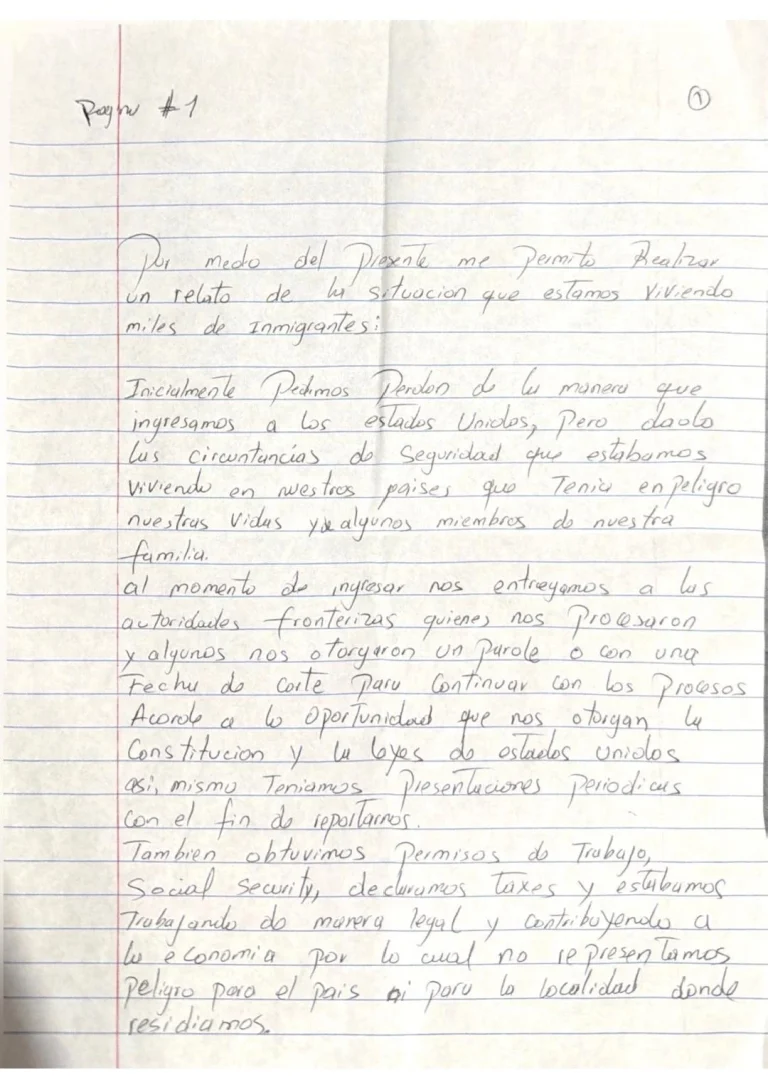 Pagina #1
①
Por medo del Presente me Permito Realizar
un relato de la situacion que estamos viviendo
miles de Inmigrantes:
Inicialmente Pedimos Perdon de la manera que
ingresamos a los estados Unidos, Pero dado
las circuntancias de Seguridad que estabamos
viviendo en nuestros paises que Tenia en peligro
nuestras vidas y de algunos miembros de nuestra
familia.
al momento de ingresar nos entregamos a las
autoridades fronterizas quienes nos Procesaron
y algunos nos otorgaron un Parole o con una
Fecha de corte Para Continuar con los Procesos
Acorde a lo Oportunidad que nos otorgan la
Constitucion y la leyes de estados unidos
asi, mismo Teniamos Presentaciones Periodicas
con el fin de reportarnos.
Tambien obtuvimos Permisos de Trabajo,
Social Security, declaramos taxes y estabamos
Trabajando de manera legal y contribuyendo a
la economia por lo cual no representamos
Peligro para el pais ni para la localidad donde
residiamos.